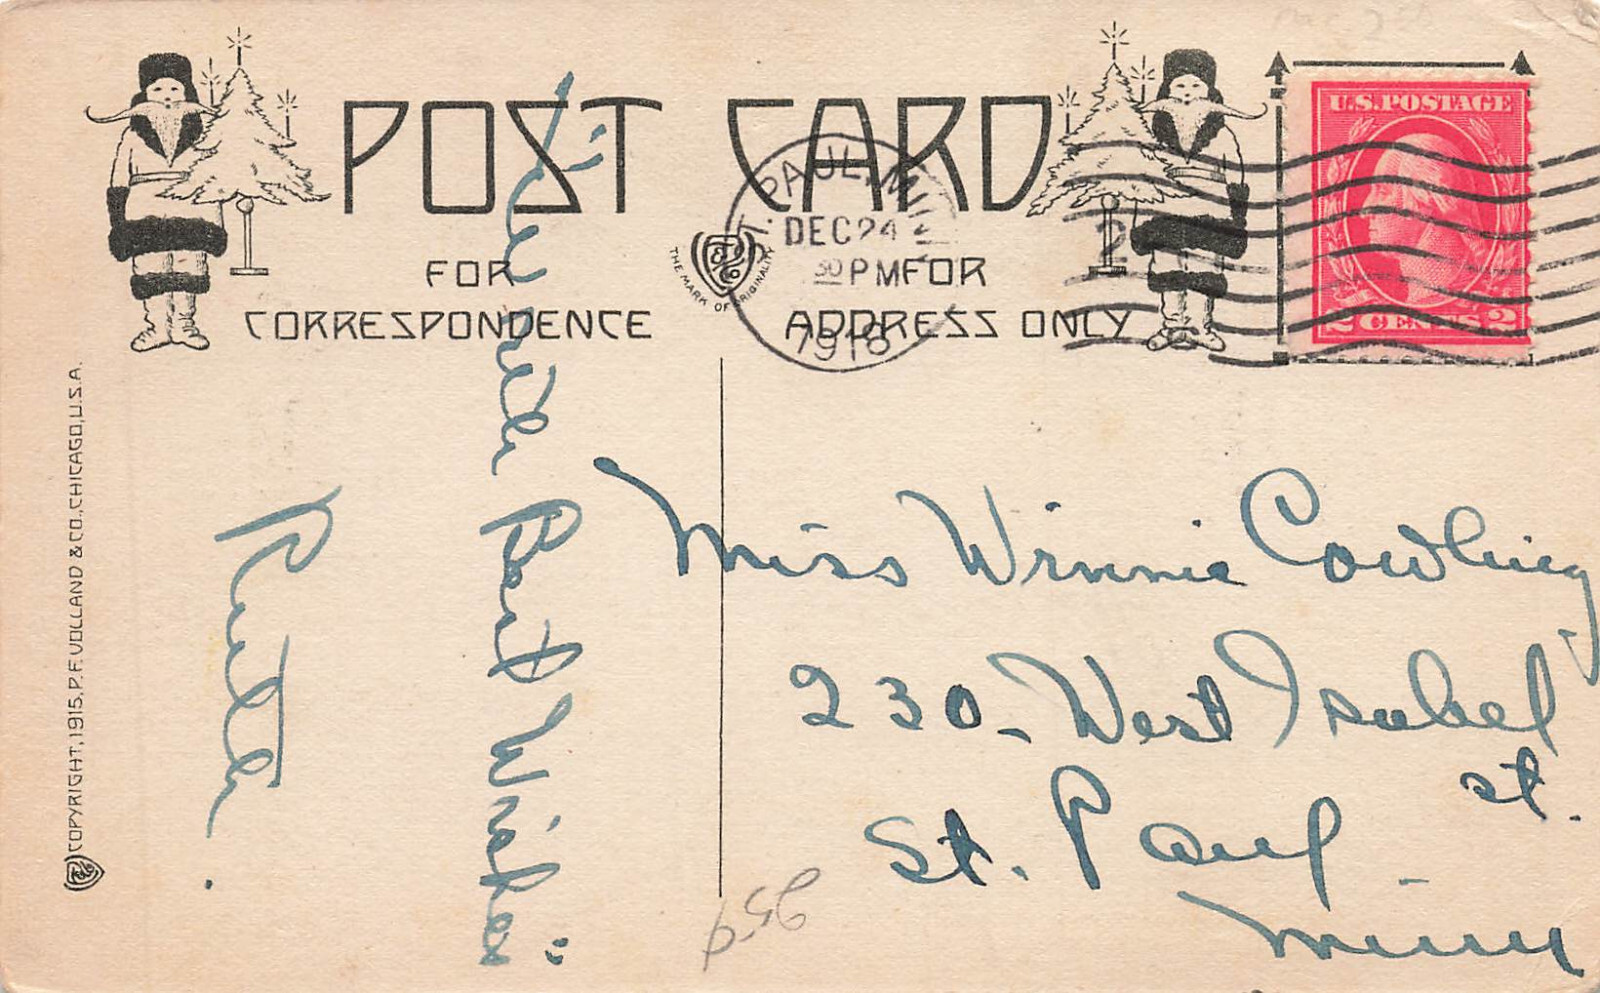 POST CARD
FOR CORRESPONDENCE
FOR ADDRESS ONLY
THE MARK OF ORIGINALITY
ST. PAUL, MINN.
DEC 24
30 PM
1918
U.S. POSTAGE
2 CENTS 2
COPYRIGHT, 1915, P. F. VOLLAND & CO., CHICAGO, U.S.A.
Best Wishes
Ruth.
Miss Winnie Cowling
230 - West Isabel
st.
St. Paul
Minn